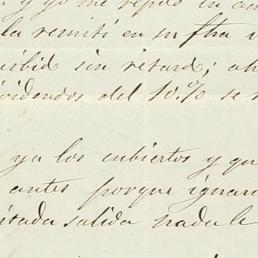 y yo me repito su
la remití en su fha
recibid sin retard; ah
videndos del 10.% se
ya los cubiertos y qu
antes porque ignora
itada salida nada le